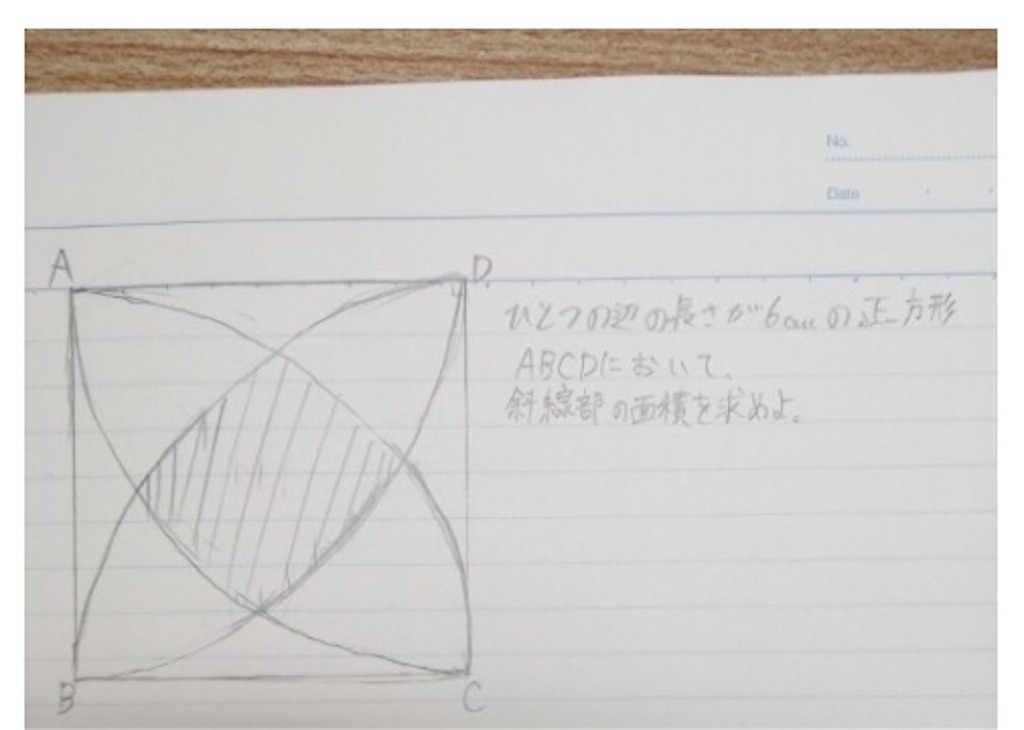 No.
Date
A
D
ひとつの辺の長さが6cmの正方形
ABCDにおいて、
斜線部の面積を求めよ。
B
C